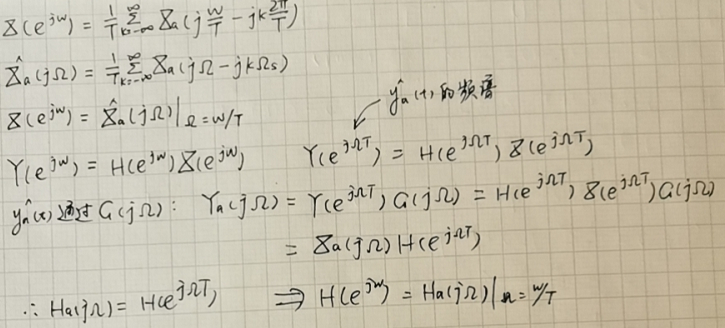 X(e^{jw}) = 1/T Σ_{k=-∞}^{∞} Xa(j w/T - jk 2π/T)
X̂a(jΩ) = 1/T Σ_{k=-∞}^{∞} Xa(jΩ - jkΩs)
ŷa(t) 的频谱
X(e^{jw}) = X̂a(jΩ)|Ω=w/T
Y(e^{jw}) = H(e^{jw}) X(e^{jw}) Y(e^{jΩT}) = H(e^{jΩT}) X(e^{jΩT})
ŷa(t) 通过 G(jΩ): Ya(jΩ) = Y(e^{jΩT}) G(jΩ) = H(e^{jΩT}) X(e^{jΩT}) G(jΩ)
= Xa(jΩ) H(e^{jΩT})
∴ Ha(jΩ) = H(e^{jΩT}) ⇒ H(e^{jw}) = Ha(jΩ)|Ω=w/T